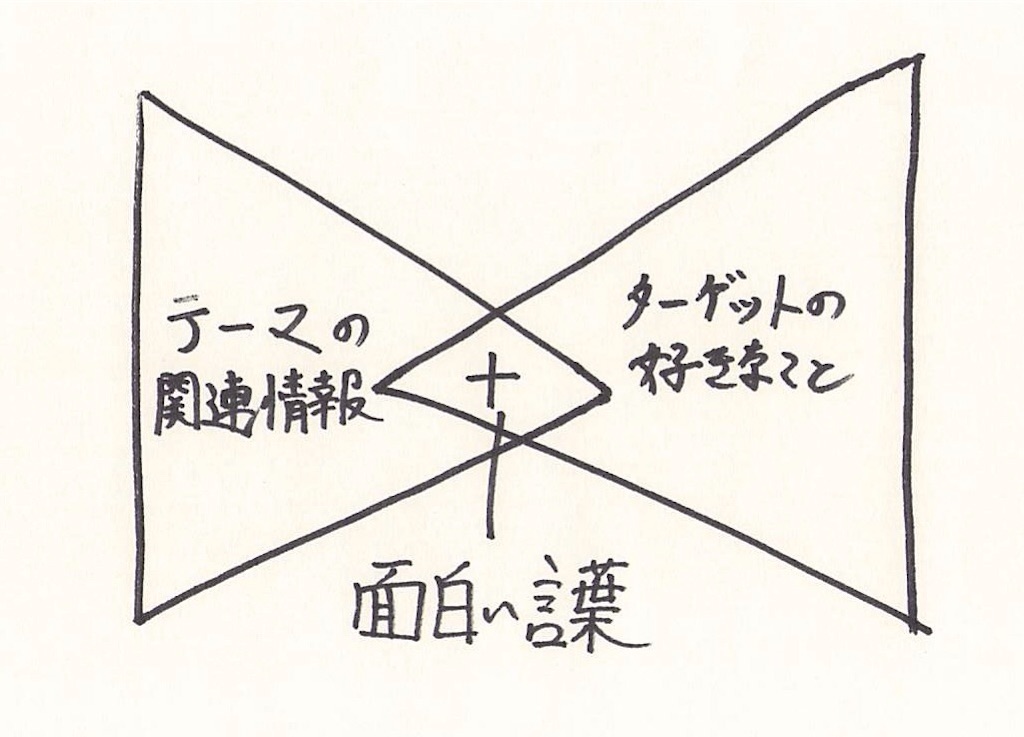 テーマの
関連情報
ターゲットの
好きなこと
+
面白い言葉